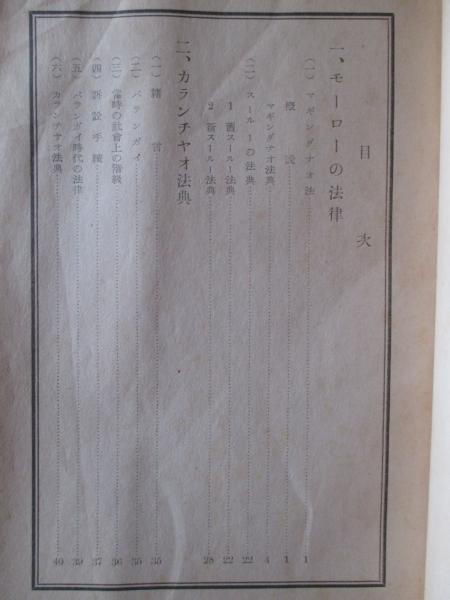 目次
一、モーローの法律
(一) マギンダナオ法 1
概説 1
マギンダナオ法典 4
(二) スールーの法典 22
1 舊スールー法典 22
2 新スールー法典 28
二、カランチヤオ法典
(一) 緒言 35
(二) バランガイ 35
(三) 當時の社會上の階級 36
(四) 訴訟手續 37
(五) バランガイ時代の法律 39
(六) カランチヤオ法典 40